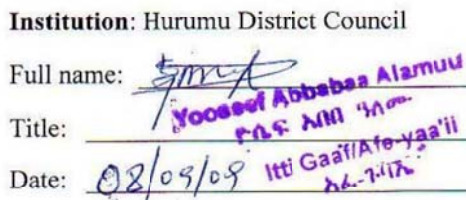 Institution: Hurumu District Council
Full name:
Yooseef Abbabaa Alamuu
Title:
ዮሴፍ አባባ ዓለሙ
Itti Gaafi/Afe-yaa'ii
Date: 08/09/09
አፈ-ጉባኤ